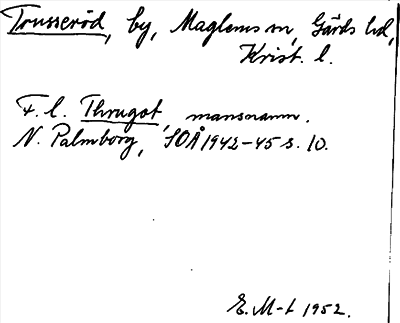 Trusseröd, by, Maglems sn, Gärds hd,
Krist. l.
F. l. Thrugot, mansnamn.
N. Palmborg, SOÅ 1942-45 s. 10.
E. M-t 1952.